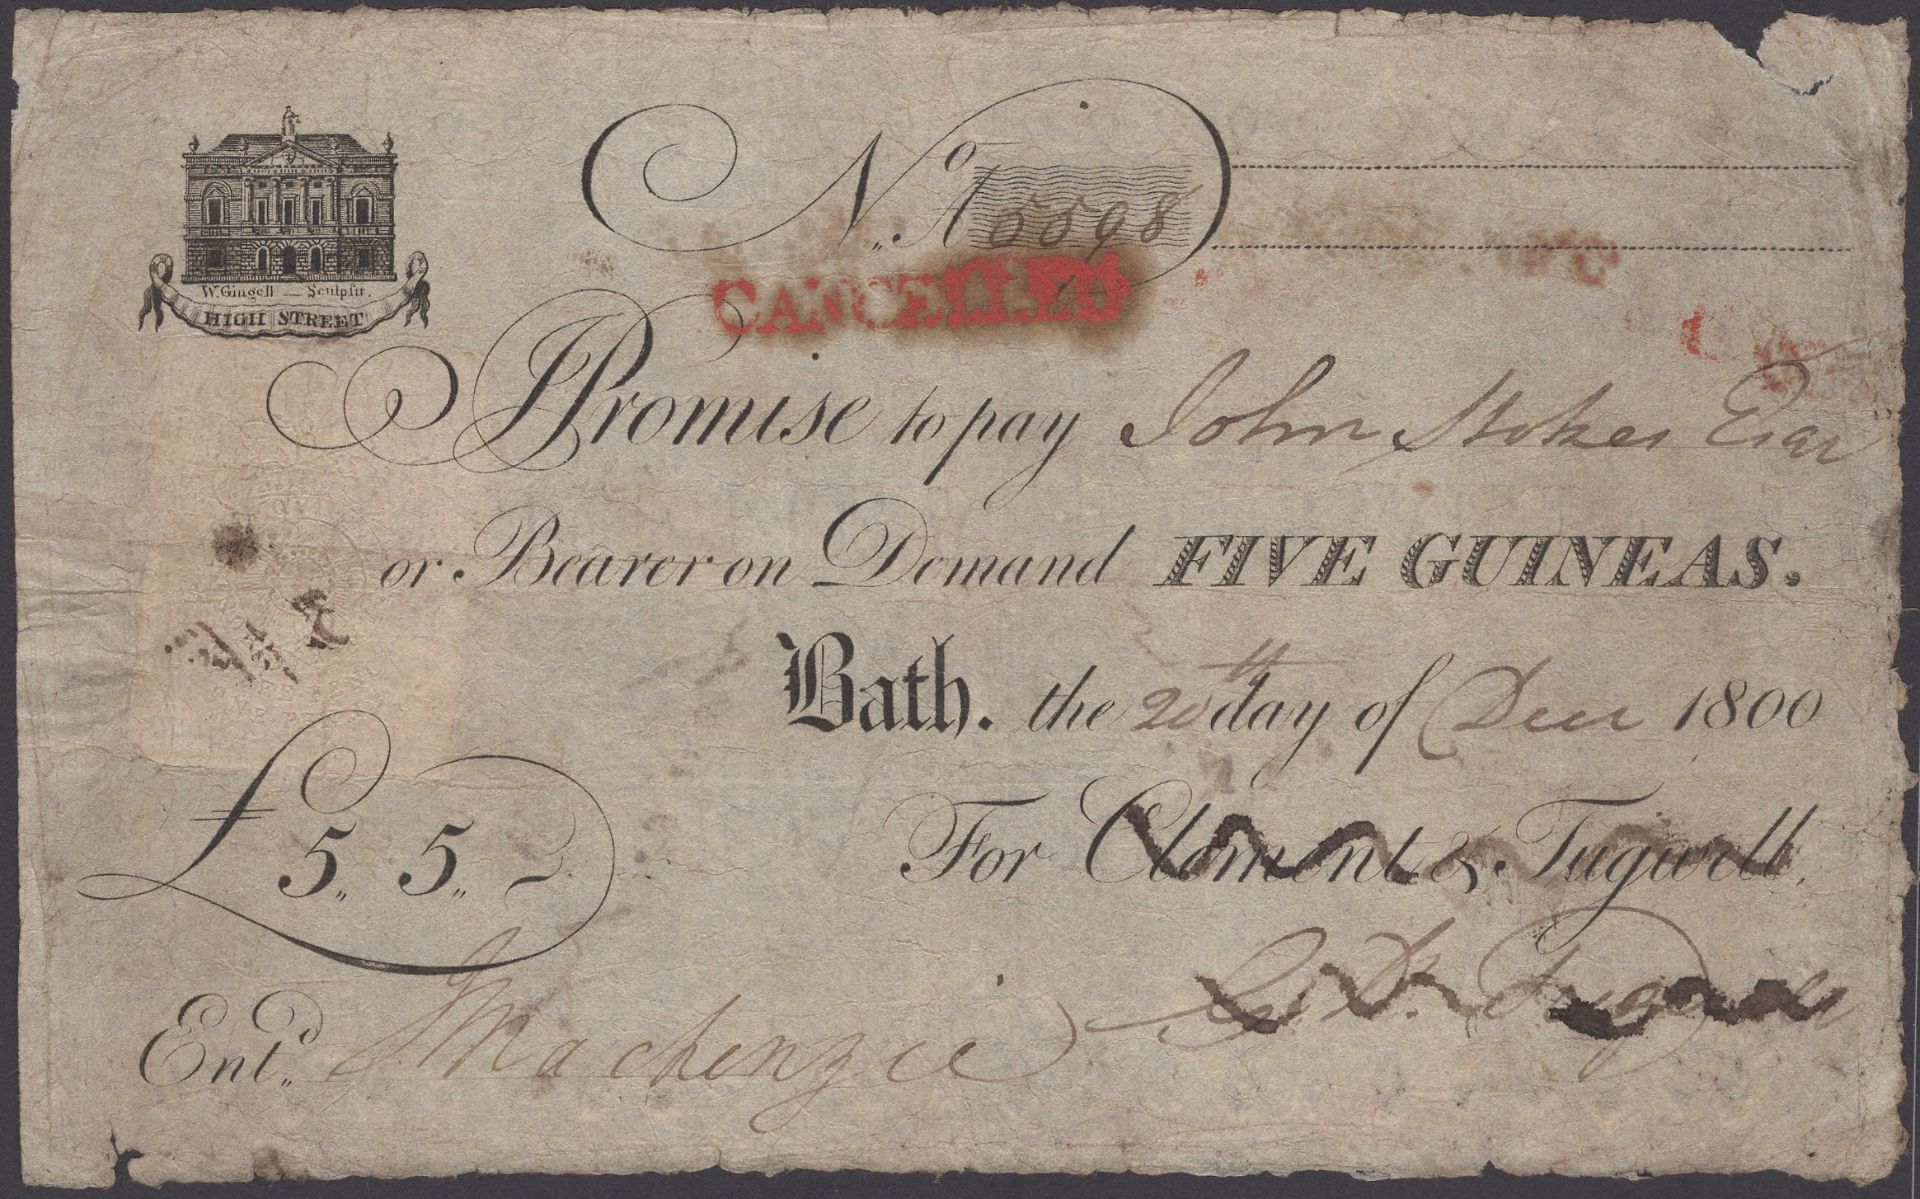 No A 5598
CANCELLED
W. Gingell Sculpsit.
HIGH STREET
I Promise to pay John Stokes Esqr
or Bearer on Demand FIVE GUINEAS.
Bath. the 20th day of Decr 1800
£ 5,, 5,,
For Clement & Tugwell.
Entd. J Mackenzie